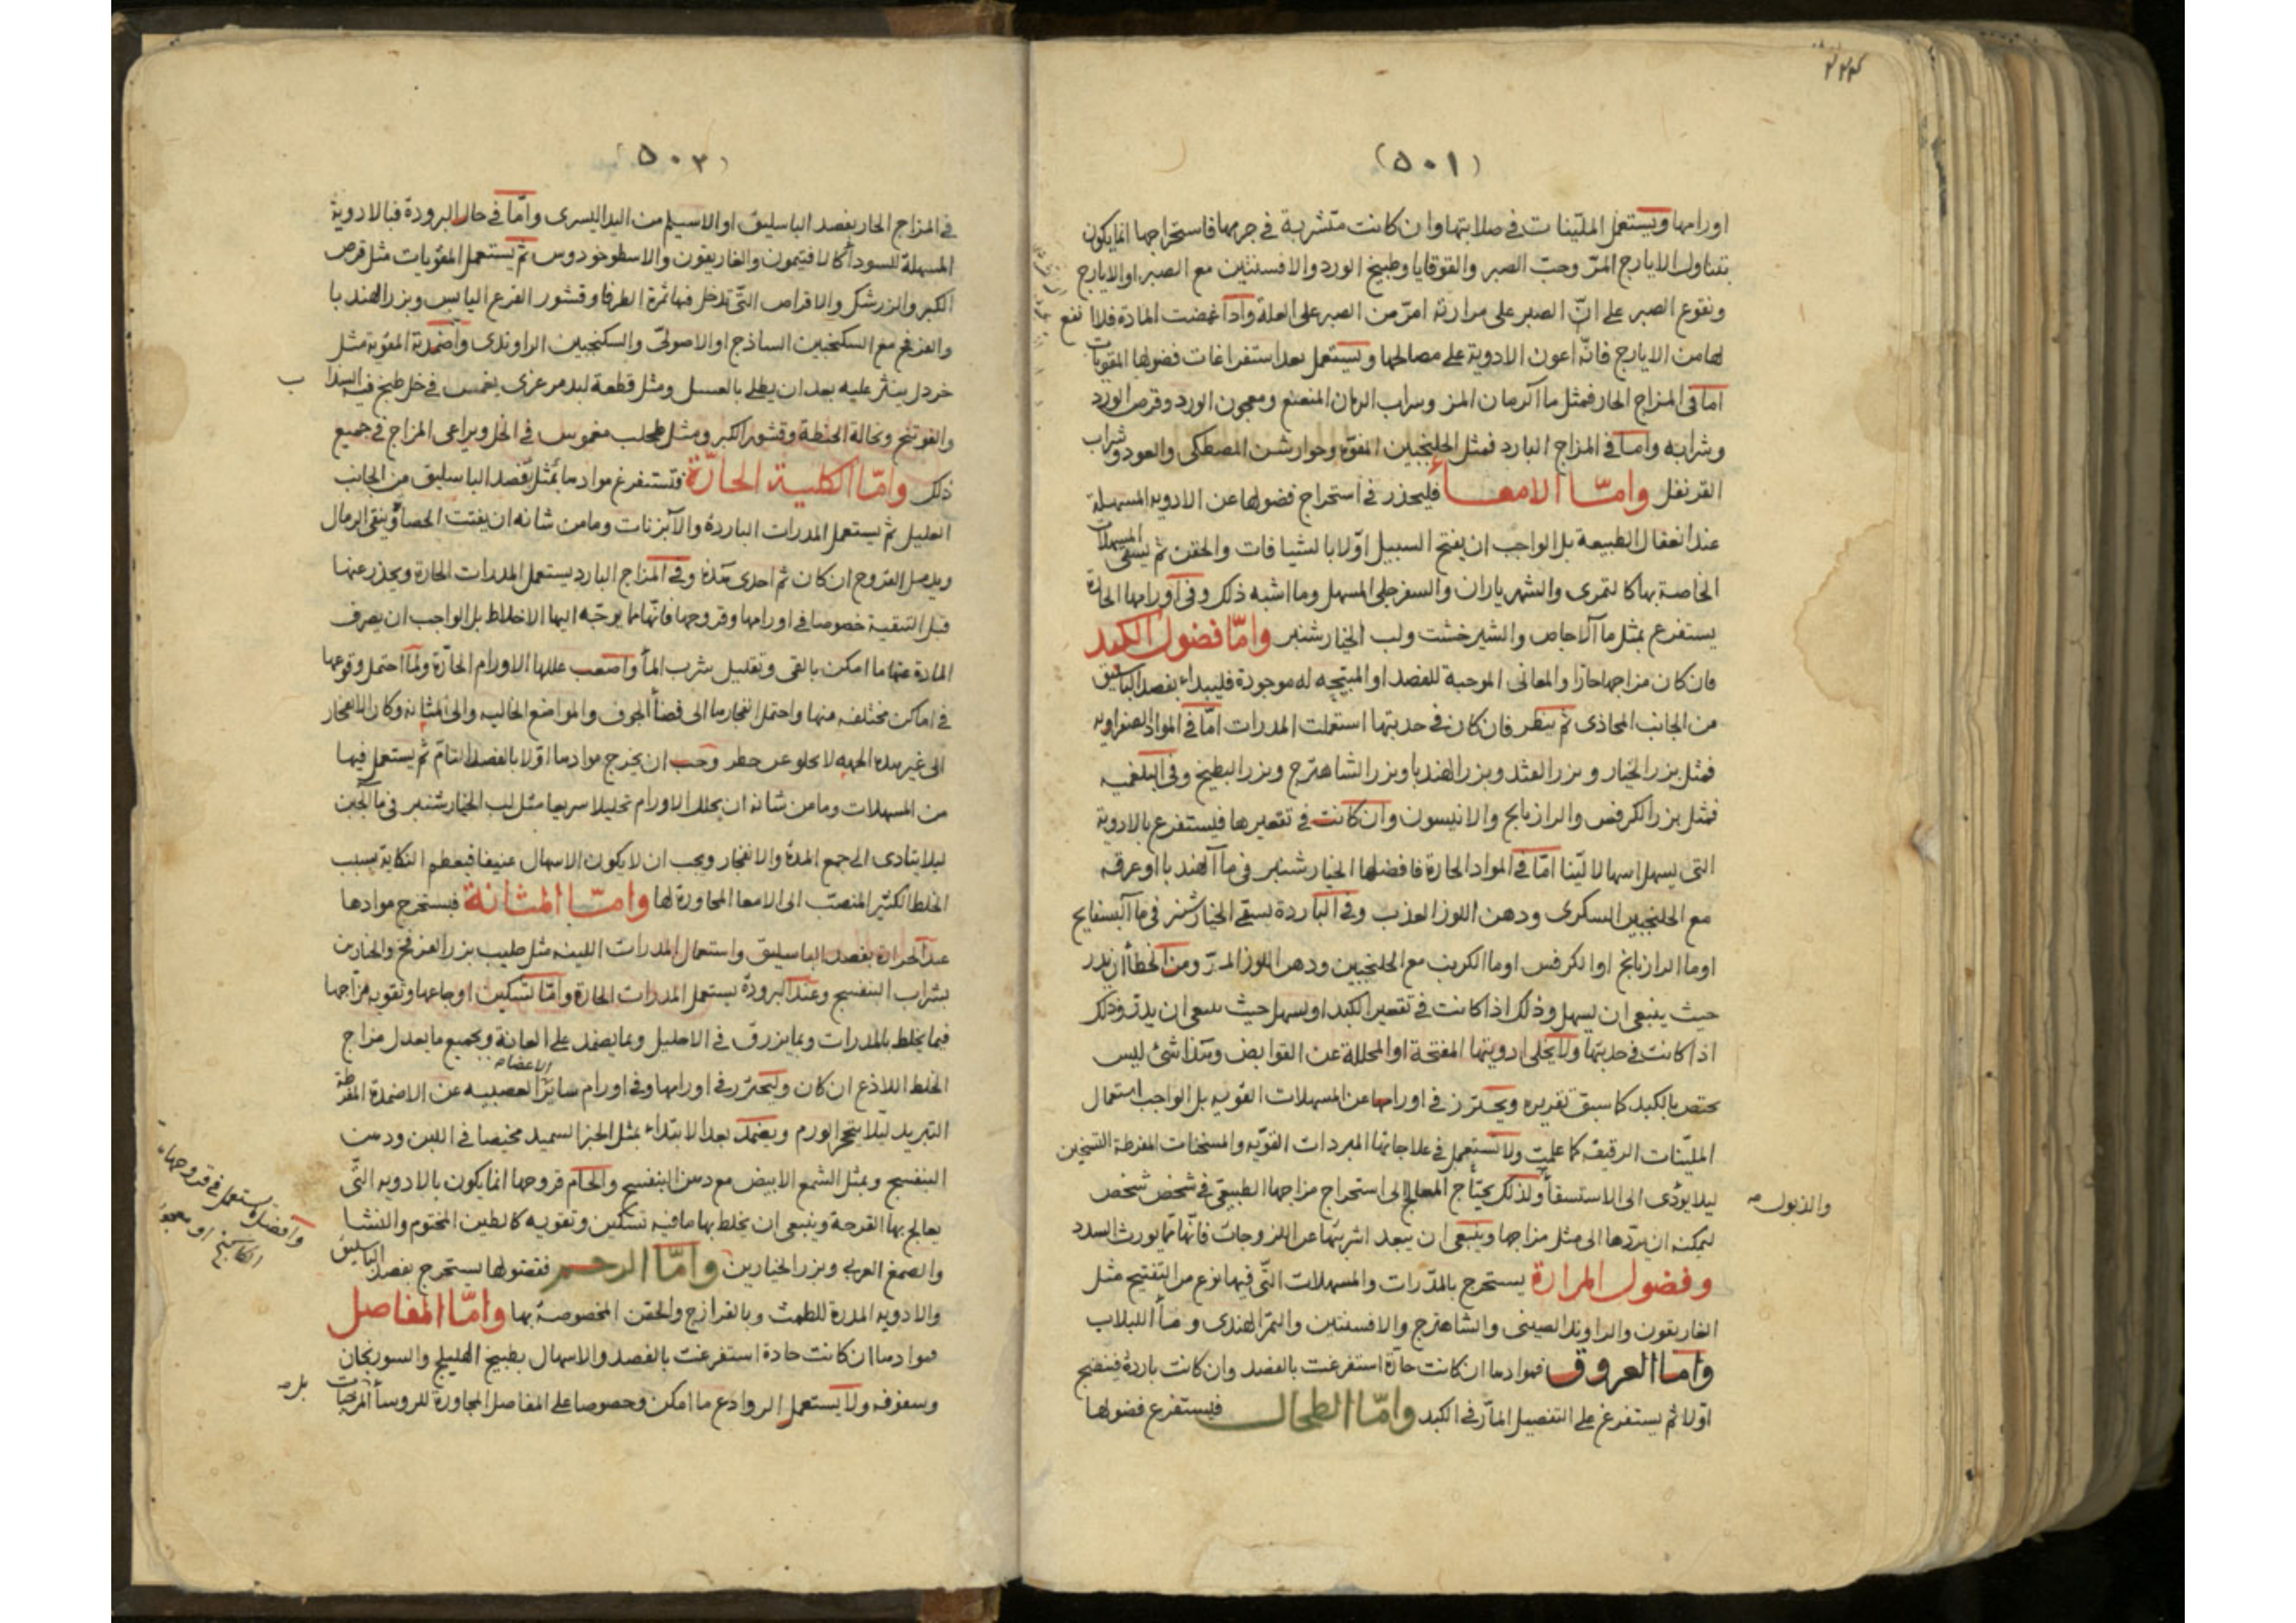 (٥٠١)
اورامها ويستعمل الملينات في صلابتها وان كانت متشربة في جرمها فاستخراجها انما يكون
بتناول الايارج المر وحب الصبر والقوقايا وطبيخ الورد والافسنتين مع الصبر او الايارج
ونقوع الصبر على ان الصبر على مرارته امر من الصبر على العلة واذا غمضت المادة فلا انفع
لها من الايارج فانه اعون الادوية على مصالحها ويستعمل بعد استفراغات فضولها المقويات
اما في المزاج الحار فمثل ماء الرمان المز وشراب الرمان المنعنع ومعجون الورد وقرص الورد
وشرابه واما في المزاج البارد فمثل الجلنجبين المفوه وجوارشن المصطكى والعود وشراب
القرنفل وامّا الامعاء فليحذر في استخراج فضولها عن الادويه المسهلة
عند انعقال الطبيعة بل الواجب ان يفتح السبيل اولا بالشيافات والحقن ثم يسقى المسهلات
الخاصة بها كالتمرى والشهرياران والسفرجلى المسهل وما اشبه ذلك وفى اورامها الحارة
يستفرغ بمثل ماء الاجاص والشيرخشت ولب الخيارشنبر وامّا فضول الكبد
فان كان مزاجها حارا والمعانى الموجبة للفصد او المبتيحه له موجودة فليبداء بفصد الباسليق
من الجانب المحاذى ثم ينظر فان كان في حدبتها استعملت المدرات اما في المواد الصفراويه
فمثل بزر الخيار وبزر القثد وبزر الهندبا وبزر الشاهترج وبزر البطيخ وفى البلغميه
فمثل بزر الكرفس والرازيانج والانيسون وان كانت في تقعيرها فليستفرغ بالادوية
التى يسهل اسهالا لينا اما في المواد الحارة فافضلها الخيارشنبر في ماء الهندبا او عرقه
مع الجلنجبين السكرى ودهن اللوز العذب وفى الباردة يسقى الخيارشنبر في ماء البسفايج
او ماء الرازيانج او الكرفس او ماء الكرنب مع الجلنجبين ودهن اللوز المر ومن الخطاء ان يدر
حيث ينبغى ان يسهل وذلك اذا كانت في تقعير الكبد او يسهل حيث ينبغى ان يدر وذلك
اذا كانت في حدبتها ولا يخلى ادويتها المفتحة او المحللة عن القوابض وهذا شئ ليس
يختص بالكبد كما سبق تقريره ويحترز في اورامها عن المسهلات القويه بل الواجب استعمال
الملينات الرقيقه كما علمت ولا تستعمل في علاجاتها المبردات القويه والمسخنات المفرطة التسخين
ليلا يؤدى الى الاستسقاء ولذلك يحتاج المعالج الى استخراج مزاجها الطبيعى في شخص شخص
والذبول صه
ليمكنه ان يردها الى مثل مزاجها وينبغى ان يبعد اشربتها عن اللزوجات فانها مما يورث السدد
وفضول المرارة يستخرج بالمدرات والمسهلات التى فيها نوع من التفتيح مثل
الغاريقون والراوند الصينى والشاهترج والافسنتين والتمر الهندى وماء اللبلاب
وامّا العروق فموادها ان كانت حارة استفرغت بالفصد وان كانت باردة فينضج
اولا ثم يستفرغ على التفصيل المار في الكبد وامّا الطحال فليستفرغ فضولها
(٥٠٢)
في المزاج الحار بفصد الباسليق او الاسيلم من اليد اليسرى واما في حال البرودة فبالادوية
المسهلة للسوداء كالافيتمون والغاريقون والاسطوخودوس ثم يستعمل المقويات مثل قرص
الكبر والزرشك والاقراص التى تدخل فيها ثمرة الطرفا وقشور القرع اليابس وبزر الهندبا
والفرفخ مع السكنجبين الساذج او الاصولى والسكنجبين الراوندى واضمدته المقويه مثل
خردل ينثر عليه بعد ان يطلى بالعسل ومثل قطعة لبد مرعزى يغمس في خل طبخ فيه السذاب
والفوتنج ونخالة الحنطة وقشور الكبر ومثل طحلب مغموس في الخل ويراعى المزاج في جميع
ذلك وامّا الكلية الحارّة فتستفرغ موادها بمثل فصد الباسليق من الجانب
العليل ثم يستعمل المدرات الباردة والآبزنات وما من شانه ان يفتت الحصاة وينقى الرمال
ويدمل القروح ان كان ثم احدى هذه وفى المزاج البارد يستعمل المدرات الحارة ويحذر عنها
قبل التنقية خصوصا في اورامها وقروحها فانها مما يوجه اليها الاخلاط بل الواجب ان يصرف
المادة عنها ما امكن بالقى وتقليل شرب الماء واصعب عللها الاورام الحارة ولما احتمل وقوعها
في اماكن مختلفه منها واحتمل انفجارها الى فضاء الجوف والمواضع الخاليه والى المثانه وكان الانفجار
الى غير هذه الجهه لا يخلو عن خطر وجب ان يخرج موادها اولا بالفصد التام ثم يستعمل فيها
من المسهلات وما من شانه ان يحلل الاورام تحليلا سريعا مثل لب الخيارشنبر في ماء الجبن
ليلا يتادى الى جمع المدة والانفجار ويجب ان لا يكون الاسهال عنيفا فيعظم النكاية بسبب
الخلط الكثير المنصب الى الامعاء المجاورة لها وامّا المثانة فيستخرج موادها
عند الحرارة بفصد الباسليق واستعمال المدرات اللينه مثل حليب بزر الفرفخ والخيارين
بشراب البنفسج وعند البرودة يستعمل المدرات الحارة واما تسكين اوجاعها وتقويه مزاجها
فبما يخلط بالمدرات وبما يزرق في الاحليل وبما يضمد على العانة وبجميع ما يعدل مزاج
الخلط اللاذع ان كان وليحترز في اورامها وفى اورام ساير الاعضاء العصبيه عن الاضمدة المفرطة
التبريد ليلا يتحجر الورم ويضمد بعد الابتداء بمثل الخبز السميد مخيصا في اللبن ودهن
البنفسج وبمثل الشمع الابيض مع دهن البنفسج والحام قروحها انما يكون بالادويه التى
وافضل ما يستعمل في قروحها
الكاكنج او معجونه
يعالج بها القرحة وينبغى ان يخلط بها ما فيه تسكين وتقويه كالطين المختوم والنشا
والصمغ العربى وبزر الخيارين وامّا الرحم ففضولها يستخرج بفصد الباسليق
والادويه المدرة للطمث وبالفرازج والحقن المخصوصة بها وامّا المفاصل
فموادها ان كانت حادة استفرغت بالفصد والاسهال بطبيخ الهليلج والسورنجان
وسفوفه ولا يستعمل الروادع ما امكن وخصوصا على المفاصل المجاورة للروساء المرخيات
بل صه